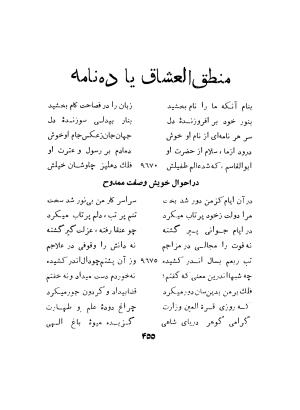 منطق العشاق یا ده نامه
بنام آنکه ما را نام بخشید زبان را در فصاحت کام بخشید
بنور خود بر افروزندهٔ دل بنار بیدلی سوزندهٔ دل
سر هر نامه‌ای از نام او خوش جهان‌جان زعکس جام اوخوش
درود ازما، سلام از حضرت او دمادم بر رسول و عترت او
ابوالقاسم، که شدعالم طفیلش ۹۶۷۰ فلك دهلیز چاوشان خیلش
دراحوال خویش وصفت ممدوح
درآن ایام کزمن دور شد بخت سراسر کار من بی‌نور شد سخت
مرا دولت زخود پرتاب میکرد تنم پر تب، دلم پرتاب میکرد
در ایام جوانی پیر گشته چو عنقا رفته، عزلت گیر گشته
نه قوت را مجالی در مزاجم نه دانش را وقوفی در علاجم
تب ربعم بسال اندر کشیده ۹۶۷۵ وز آن پشتم چودال‌اندر کشیده
چه شبها اندرین معنی که گفتم؛ نه‌خوردم دست میداد و نه خفتم
فلك بر من بدین‌سان دورمیکرد قضا بیداد و گردون جورمیکرد
به روزی قرة العین وزارت چراغ دودهٔ علم و طهارت
گرامی گوهر دریای شاهی گزیده میوهٔ باغ الهی
۴۵۵